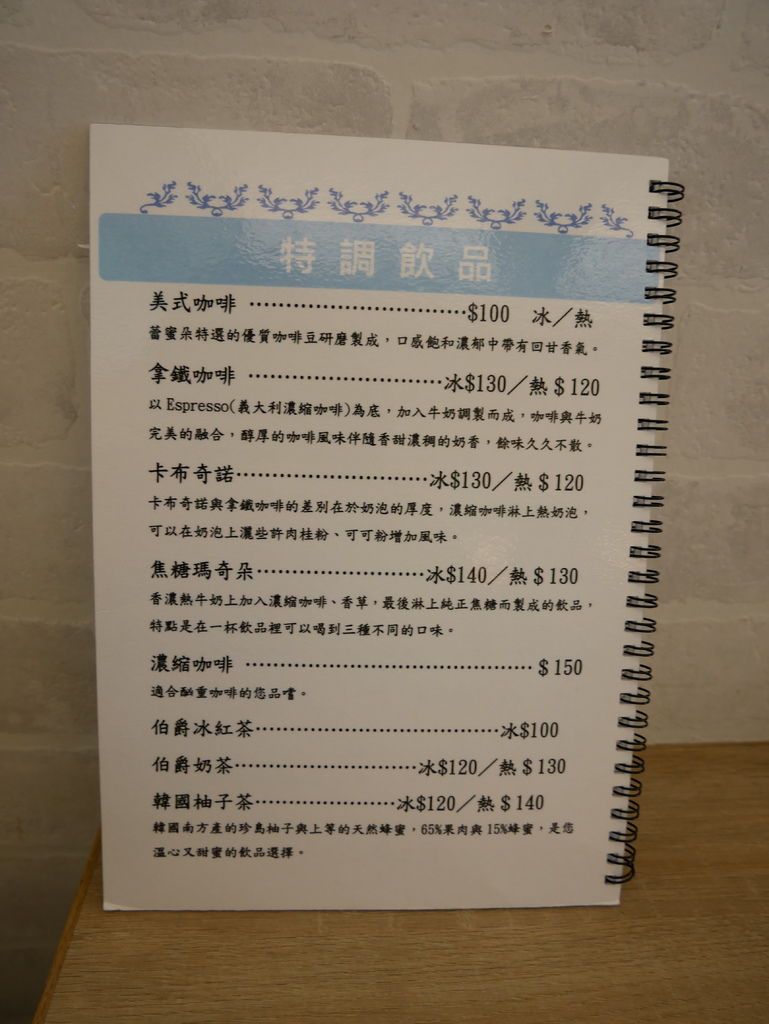 特調飲品
美式咖啡 ……………………………$100 冰／熱
蕾蜜朵特選的優質咖啡豆研磨製成，口感飽和濃郁中帶有回甘香氣。
拿鐵咖啡 …………………………冰$130／熱＄120
以 Espresso(義大利濃縮咖啡)為底，加入牛奶調製而成，咖啡與牛奶
完美的融合，醇厚的咖啡風味伴隨香甜濃稠的奶香，餘味久久不散。
卡布奇諾…………………………冰$130／熱＄120
卡布奇諾與拿鐵咖啡的差別在於奶泡的厚度，濃縮咖啡淋上熱奶泡，
可以在奶泡上灑些許肉桂粉、可可粉增加風味。
焦糖瑪奇朵………………………冰$140／熱＄130
香濃熱牛奶上加入濃縮咖啡、香草，最後淋上純正焦糖而製成的飲品，
特點是在一杯飲品裡可以喝到三種不同的口味。
濃縮咖啡 ………………………………………＄150
適合酗重咖啡的您品嚐。
伯爵冰紅茶…………………………………冰$100
伯爵奶茶…………………………冰$120／熱＄130
韓國柚子茶……………………冰$120／熱＄140
韓國南方產的珍島柚子與上等的天然蜂蜜，65%果肉與 15%蜂蜜，是您
溫心又甜蜜的飲品選擇。